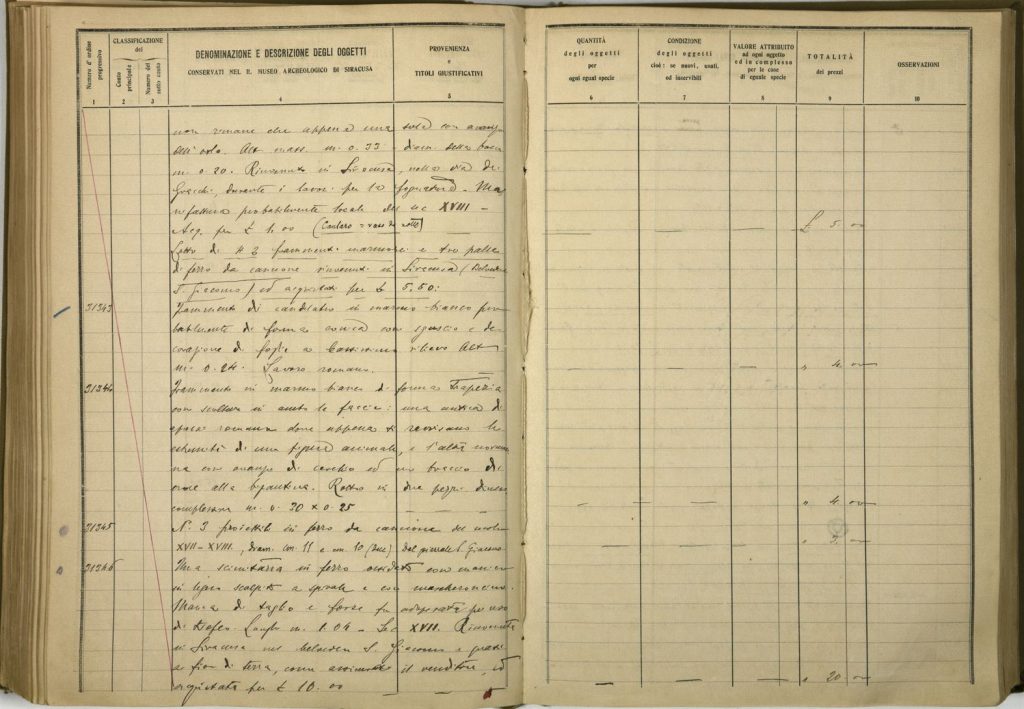 Numero d'ordine progressivo
CLASSIFICAZIONE del
Conto principale
Numero del sotto conto
DENOMINAZIONE E DESCRIZIONE DEGLI OGGETTI
CONSERVATI NEL R. MUSEO ARCHEOLOGICO DI SIRACUSA
PROVENIENZA
e
TITOLI GIUSTIFICATIVI
1 2 3 4 5
non rimane che appena una sola con avanzi
dell'orlo. Alt. mass. m. 0.33 - diam. della bocca
m. 0.20. Rinvenuto in Siracusa, nella via dei
Gracchi, durante i lavori per la fognatura. Ma
nifattura probabilmente locale del sec XVIII -
Acq. per £ 4.00 (Cantaro = vaso da notte)
Lotto di N. 2 frammenti marmorei e tre palle
di ferro da cannone rinvenuti in Siracusa (Belvedere
S. Giacomo) ed acquistati per £ 5.50:
31343 Frammento di candelabro in marmo bianco pro
babilmente di forma conica con sguscio e de
corazione di foglie a bassissimo rilievo Alt.
m. 0.24. Lavoro romano.
31344 Frammento in marmo bianco di forma trapezia
con scultura in ambo le facce: una antica di
epoca romana dove appena si ravvisano le
estremità di una figura animale, e l'altra
con avanzo di cerchio ed un braccio di
croce alla bizantina. Rotto in due pezzi.
complessive m. 0.30 x 0.25
31345 N. 3 proiettili in ferro da cannone del
XVII-XVIII, diam. cm. 11 e cm. 10 (due) dal piazzale S. Giacomo
31346 Una scimitarra in ferro ossidato con manico
in legno scolpito a spirale e con mascheroncino.
Manca di taglio e forse fu adoperata per uso
di trofeo. Lungh. m. 1.04 - Sec XVII. Rinvenuta
in Siracusa nel belvedere S. Giacomo
a fior di terra, come assicurato il venditore, ed
acquistata per £ 10.00
QUANTITÀ
degli oggetti
per
ogni egual specie
CONDIZIONE
degli oggetti
cioè: se nuovi, usati,
od inservibili
VALORE ATTRIBUITO
ad ogni oggetto
ed in complesso
per le cose
di eguale specie
TOTALITÀ
dei prezzi
OSSERVAZIONI
6 7 8 9 10
£ 5 00
" 4 00
" 4 00
" 3 00
" 20 00